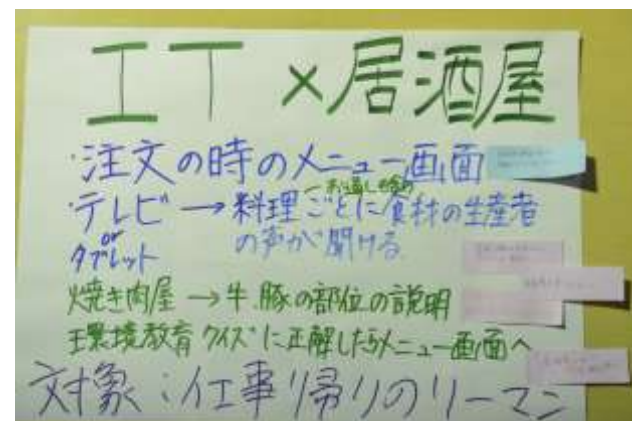 IT×居酒屋
・注文の時のメニュー画面
・テレビ→料理ごとに食材の生産者
or
タブレット の声が聞ける
焼き肉屋→牛、豚の部位の説明
環境教育クイズに正解したらメニュー画面へ
対象：仕事帰りのリーマン